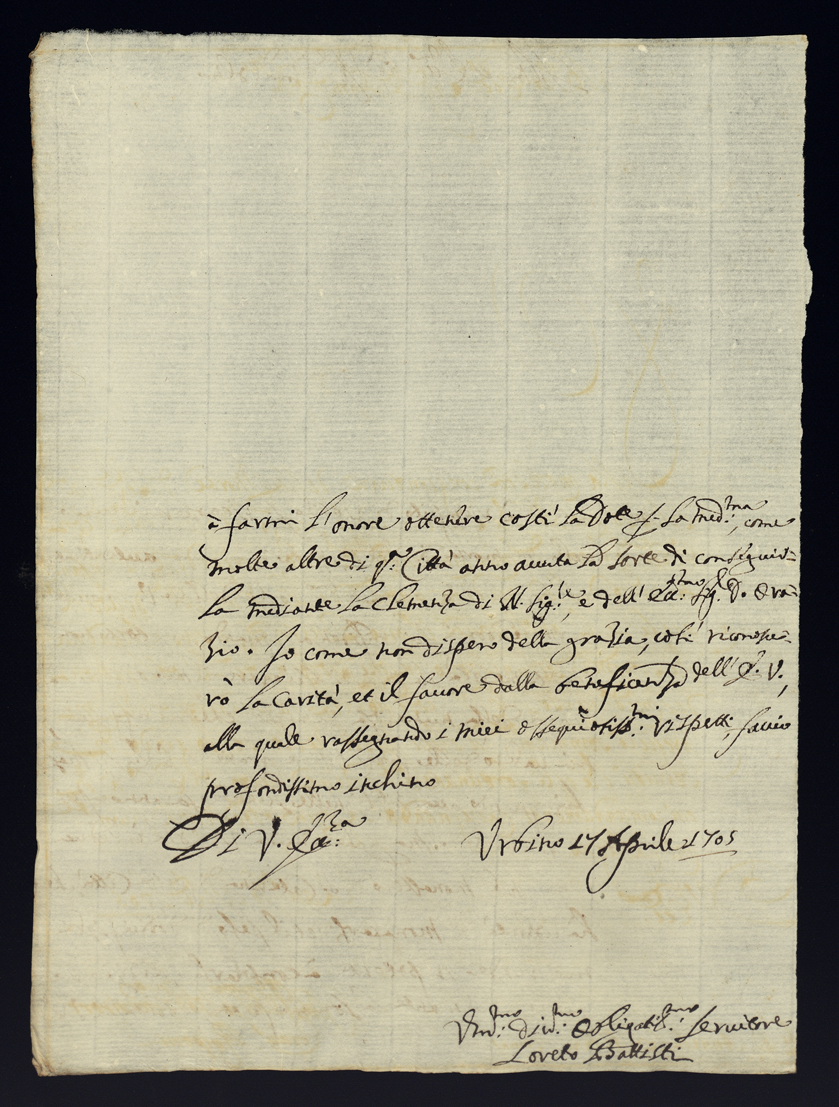 à farmi l'onore ottenere costì la Dote p. la med.ma, come
molte altre di q.a Città anno avuta la sorte di conseguir-
la mediante la Clemenza di N. Sig.re, e dell' Ecc.mo Sig.r D. Ora-
zio. Io come non dispero della grazia, così riconosce-
rò la carità, et il favore dalla beneficenza dell' E. V.,
alla quale rassegnando i miei ossequiosiss.mi rispetti, faccio
profondissimo inchino
Di V. Ecc.za Urbino 17 Aprile 1705
Um.mo div.mo Obligatis.mo Servitore
Loreto Battisti